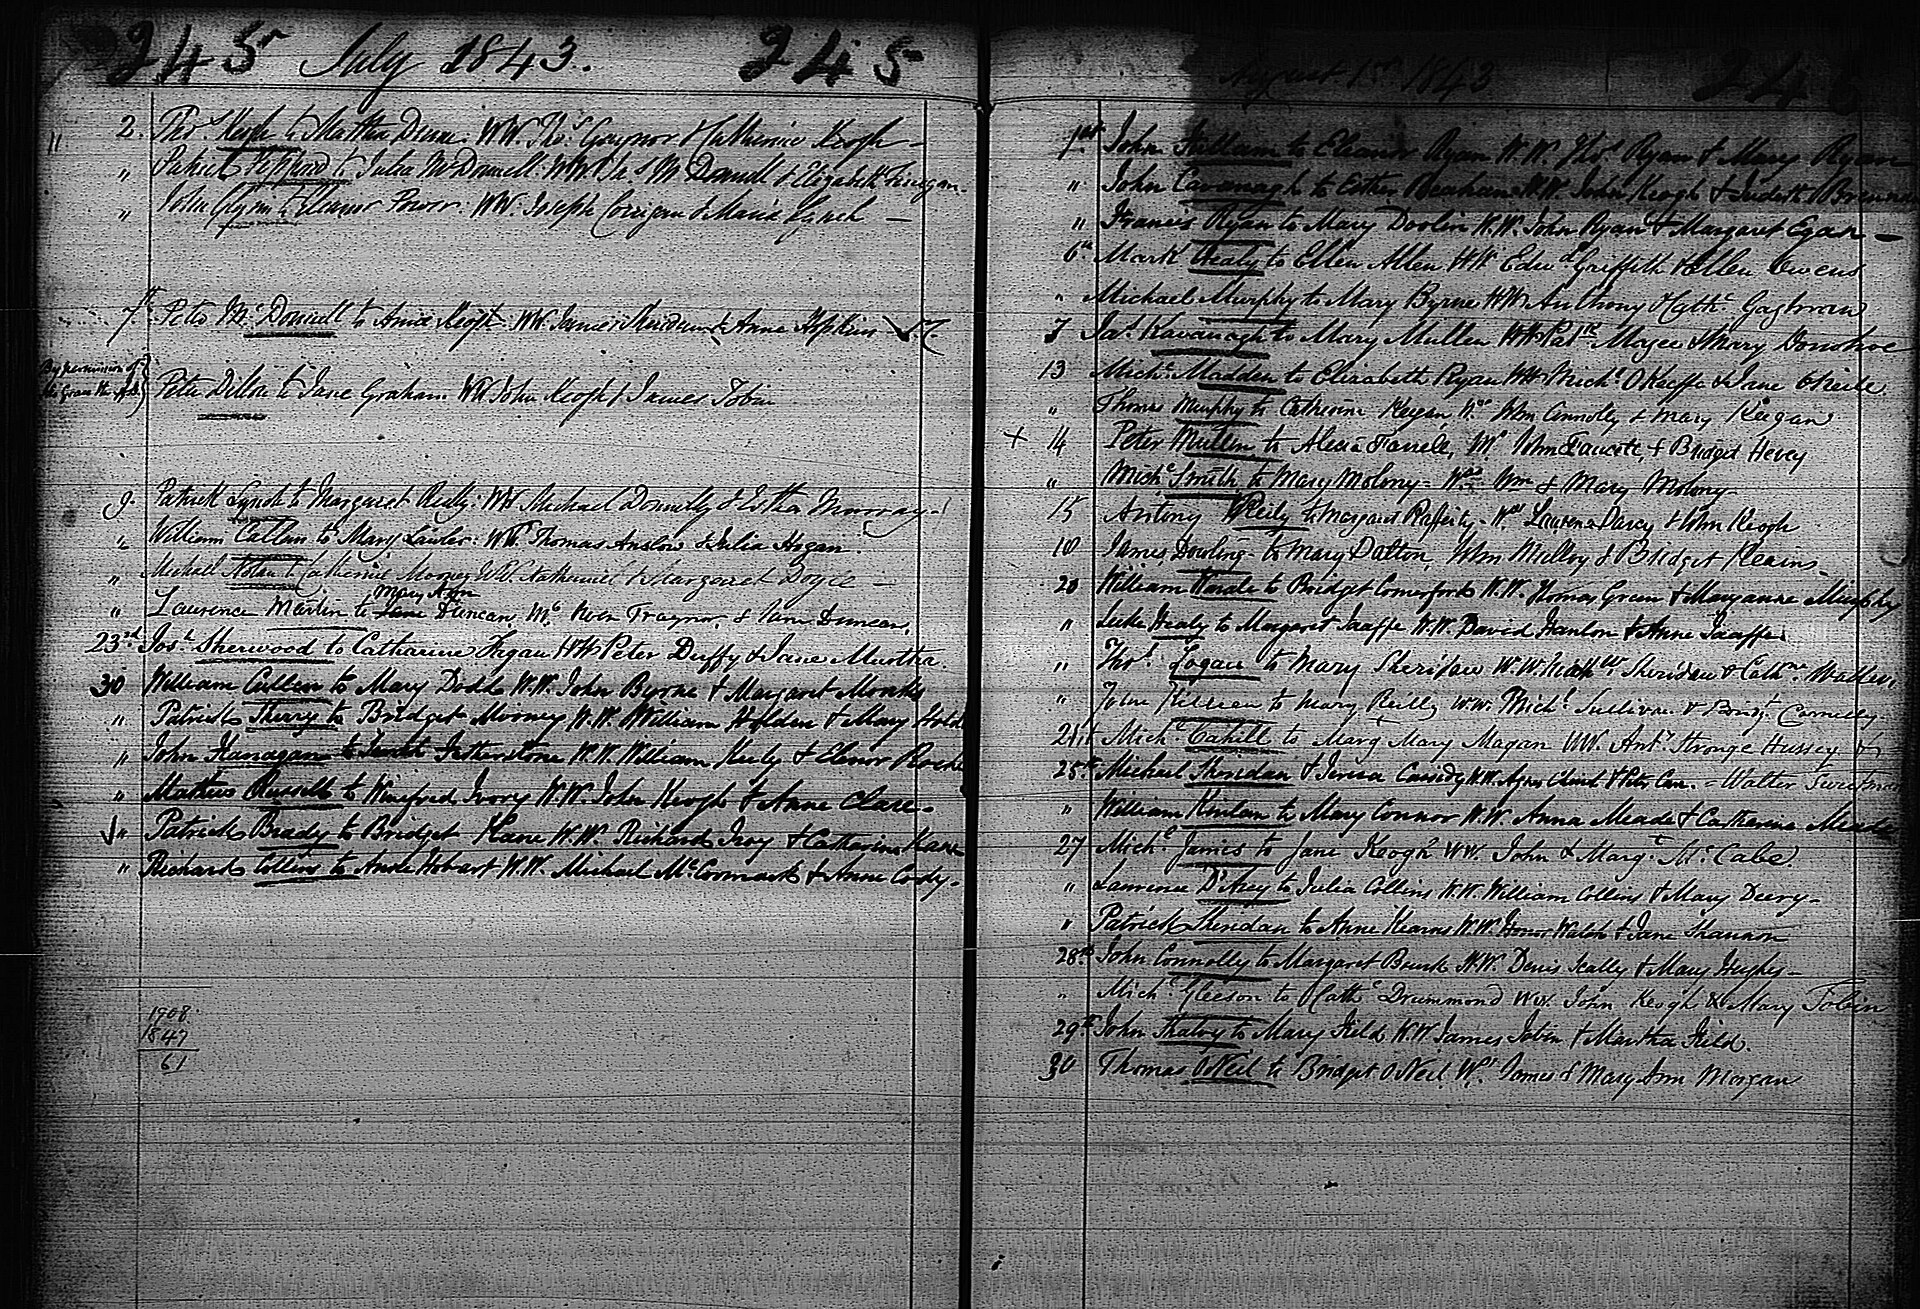 245 July 1843. 245
" 2. Thos Keogh to Martha Dunne. WW. Thos Gaynor & Catherine Keogh –
" Patrick Peppard to Julia McDonnell: WW. Jas McDonnell & Elizabeth Finegan.
" John Glynn to Eleanor Power: WW. Joseph Corrigan & Maria Lynch –
7th Peter McDonnell to Anne Keogh: WW. James Sheridan & Anne Hopkins
By permission of
his Grace the
Peter Dillon to Jane Graham WW John Keogh & James Tobin
9. Patrick Lynch to Margaret Reilly: WW Michael Donnelly & Esther Murray –
" William Callan to Mary Lawler: WW. Thomas Anslow & Julia Hogan.
" Michael Nolan to Catherine Mooney WW. Nathaniel & Margaret Doyle –
Mary Ann
" Laurence Martin to Jane Duncan. Ws. Owen Traynor, & Jane Duncan.
23rd Josh Sherwood to Catharine Fagan WW Peter Duffy & Jane Murtha.
30 William Cullen to Mary Dodd W.W. John Byrne & Margaret Monks
" Patrick Sherry to Bridget Mooney W.W. William Holden & Mary
" John Flanagan to Judith Fetherstone W.W. William Kiely & Elenor Roche
" Mathew Russell to Winefred Ivory W.W. John Keogh & Anne Clare –
" Patrick Brady to Bridget Kane W.W. Richard Ivory & Catherine Kane
" Richard Collins to Anne Hobart W.W. Michael McCormack & Anne Cody –
1908
1847
61
August 1st 1843 246
1st John to Eleanor Ryan W.W. Thos Ryan & Mary Ryan
" John Cavanagh to Esther W.W. John Keogh & Judith
" Francis Ryan to Mary Doolin W.W. John Ryan & Margaret Egan –
6th Mark Healy to Ellen Allen WW Edwd Griffith & Ellen Owens
" Michael Murphy to Mary Byrne WW Anthony & Cathe
7 Jas Kavanagh to Mary Mullen WW Patk Magee & Mary Donohoe
13 Michl Madden to Elizabeth Ryan WW Michl O'Keeffe & Jane O'Neile.
" Thomas Murphy to Catherine Keegan, Ws Wm Connolly & Mary Keegan
+ 14 Peter Mullen to Alecia Farrell, Ws John Fawcett, & Bridget Hevey
" Michl Smith to Mary Molony – Wes Wm & Mary Molony –
15 Antony Reily to Margaret Rafferty – Wes Laurence Darcy & Wm Keogh
10 James Dowling – to Mary Dalton, Wm Mulloy & Bridget Kearns –
20 William to Bridget Comerford W.W. Thomas Green & Maryanne Murphy
" Luke Healy to Margaret Taaffe W.W. David Hanlon & Anne Taaffe.
" Thos Logan to Mary Sheridan W.W. Sheridan & Cathne
" John to Mary Reilly WW. Michl Sullivan & Bridgt Connelly.
21st Michl Cahill to Margt Mary Magan WW. Anty Stronge Hussey &
25th Michael Sheridan & Teresa Cassidy W.W. Agnes & Peter – Walter Sweetman
" William to Mary Connor W.W. Anna Meade & Catherine Meade
27 Michl James to Jane Keogh WW. John & Margt McCabe.
" Laurence D'Arcy to Julia Collins W.W. William Collins & Mary Deery –
" Patrick Sheridan to Anne Kearns W.W. Honor Walsh & Jane Shannon
28th John Connolly to Margaret W.W. Denis Scally & Mary Hughes –
" Michl Gleeson to Cathe Drummond WW. John Keogh & Mary Tobin
29th John to Mary Field W.W. James Tobin & Martha Field.
30 Thomas O'Neil to Bridget O'Neil Wst James & Mary Ann Morgan